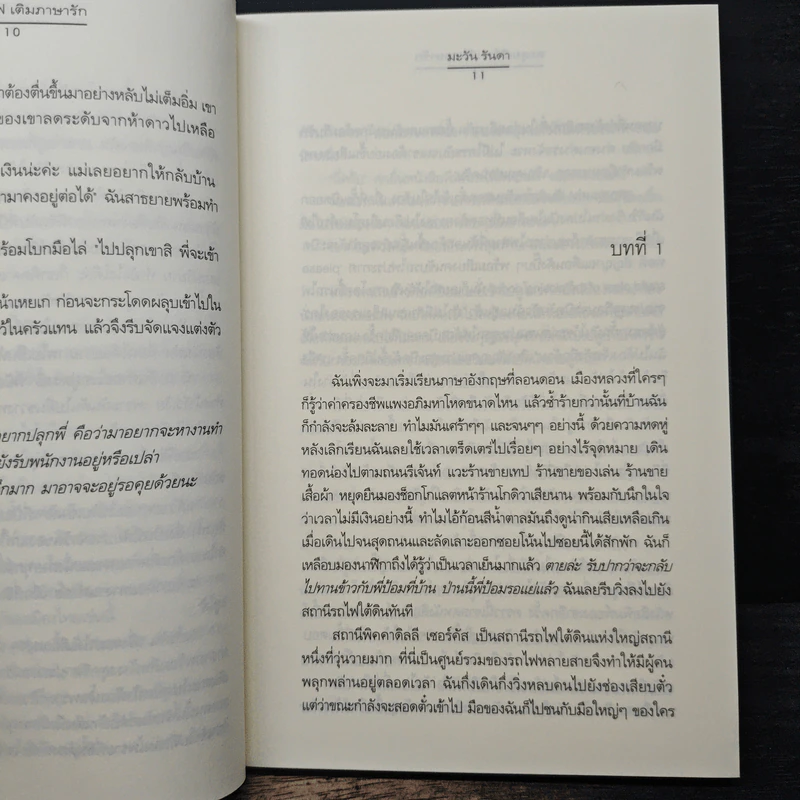 เติมภาษารัก
10
ต้องตื่นขึ้นมาอย่างหลับไม่เต็มอิ่ม เขา
ของเขาลดระดับจากห้าดาวไปเหลือ
เงินน่ะค่ะ แม่เลยอยากให้กลับบ้าน
ามาคงอยู่ต่อได้" ฉันสาธยายพร้อมทำ
ร้อมโบกมือไล่ "ไปปลุกเขาสิ พี่จะเข้า
น้าเหยเก ก่อนจะกระโดดผลุบเข้าไปใน
ว้ในครัวแทน แล้วจึงรีบจัดแจงแต่งตัว
อยากปลุกพี่ คือว่ามาอยากจะหางานทำ
ยังรับพนักงานอยู่หรือเปล่า
กมาก มาอาจจะอยู่รอคุยด้วยนะ
มะวัน รันดา
11
บทที่ 1
ฉันเพิ่งจะมาเริ่มเรียนภาษาอังกฤษที่ลอนดอน เมืองหลวงที่ใครๆ
ก็รู้ว่าค่าครองชีพแพงอภิมหาโหดขนาดไหน แล้วซ้ำร้ายกว่านั้นที่บ้านฉัน
ก็กำลังจะล้มละลาย ทำไมมันเศร้าๆๆ และจนๆๆ อย่างนี้ ด้วยความหดหู่
หลังเลิกเรียนฉันเลยใช้เวลาเตร็ดเตร่ไปเรื่อยๆ อย่างไร้จุดหมาย เดิน
ทอดน่องไปตามถนนรีเจ้นท์ แวะร้านขายเทป ร้านขายของเล่น ร้านขาย
เสื้อผ้า หยุดยืนมองช็อกโกแลตหน้าร้านโกดิวาเสียนาน พร้อมกับนึกในใจ
ว่าเวลาไม่มีเงินอย่างนี้ ทำไมไอ้ก้อนสีน้ำตาลมันถึงดูน่ากินเสียเหลือเกิน
เมื่อเดินไปจนสุดถนนและลัดเลาะออกซอยโน้นไปซอยนี้ได้สักพัก ฉันก็
เหลือบมองนาฬิกาถึงได้รู้ว่าเป็นเวลาเย็นมากแล้ว ตายล่ะ รับปากว่าจะกลับ
ไปทานข้าวกับพี่ป้อมที่บ้าน ป่านนี้พี่ป้อมรอแย่แล้ว ฉันเลยรีบวิ่งลงไปยัง
สถานีรถไฟใต้ดินทันที
สถานีพิคคาดิลลี เซอร์คัส เป็นสถานีรถไฟใต้ดินแห่งใหญ่สถานี
หนึ่งที่วุ่นวายมาก ที่นี่เป็นศูนย์รวมของรถไฟหลายสายจึงทำให้มีผู้คน
พลุกพล่านอยู่ตลอดเวลา ฉันกึ่งเดินกึ่งวิ่งหลบคนไปยังช่องเสียบตั๋ว
แต่ว่าขณะกำลังจะสอดตั๋วเข้าไป มือของฉันก็ไปชนกับมือใหญ่ๆ ของใคร